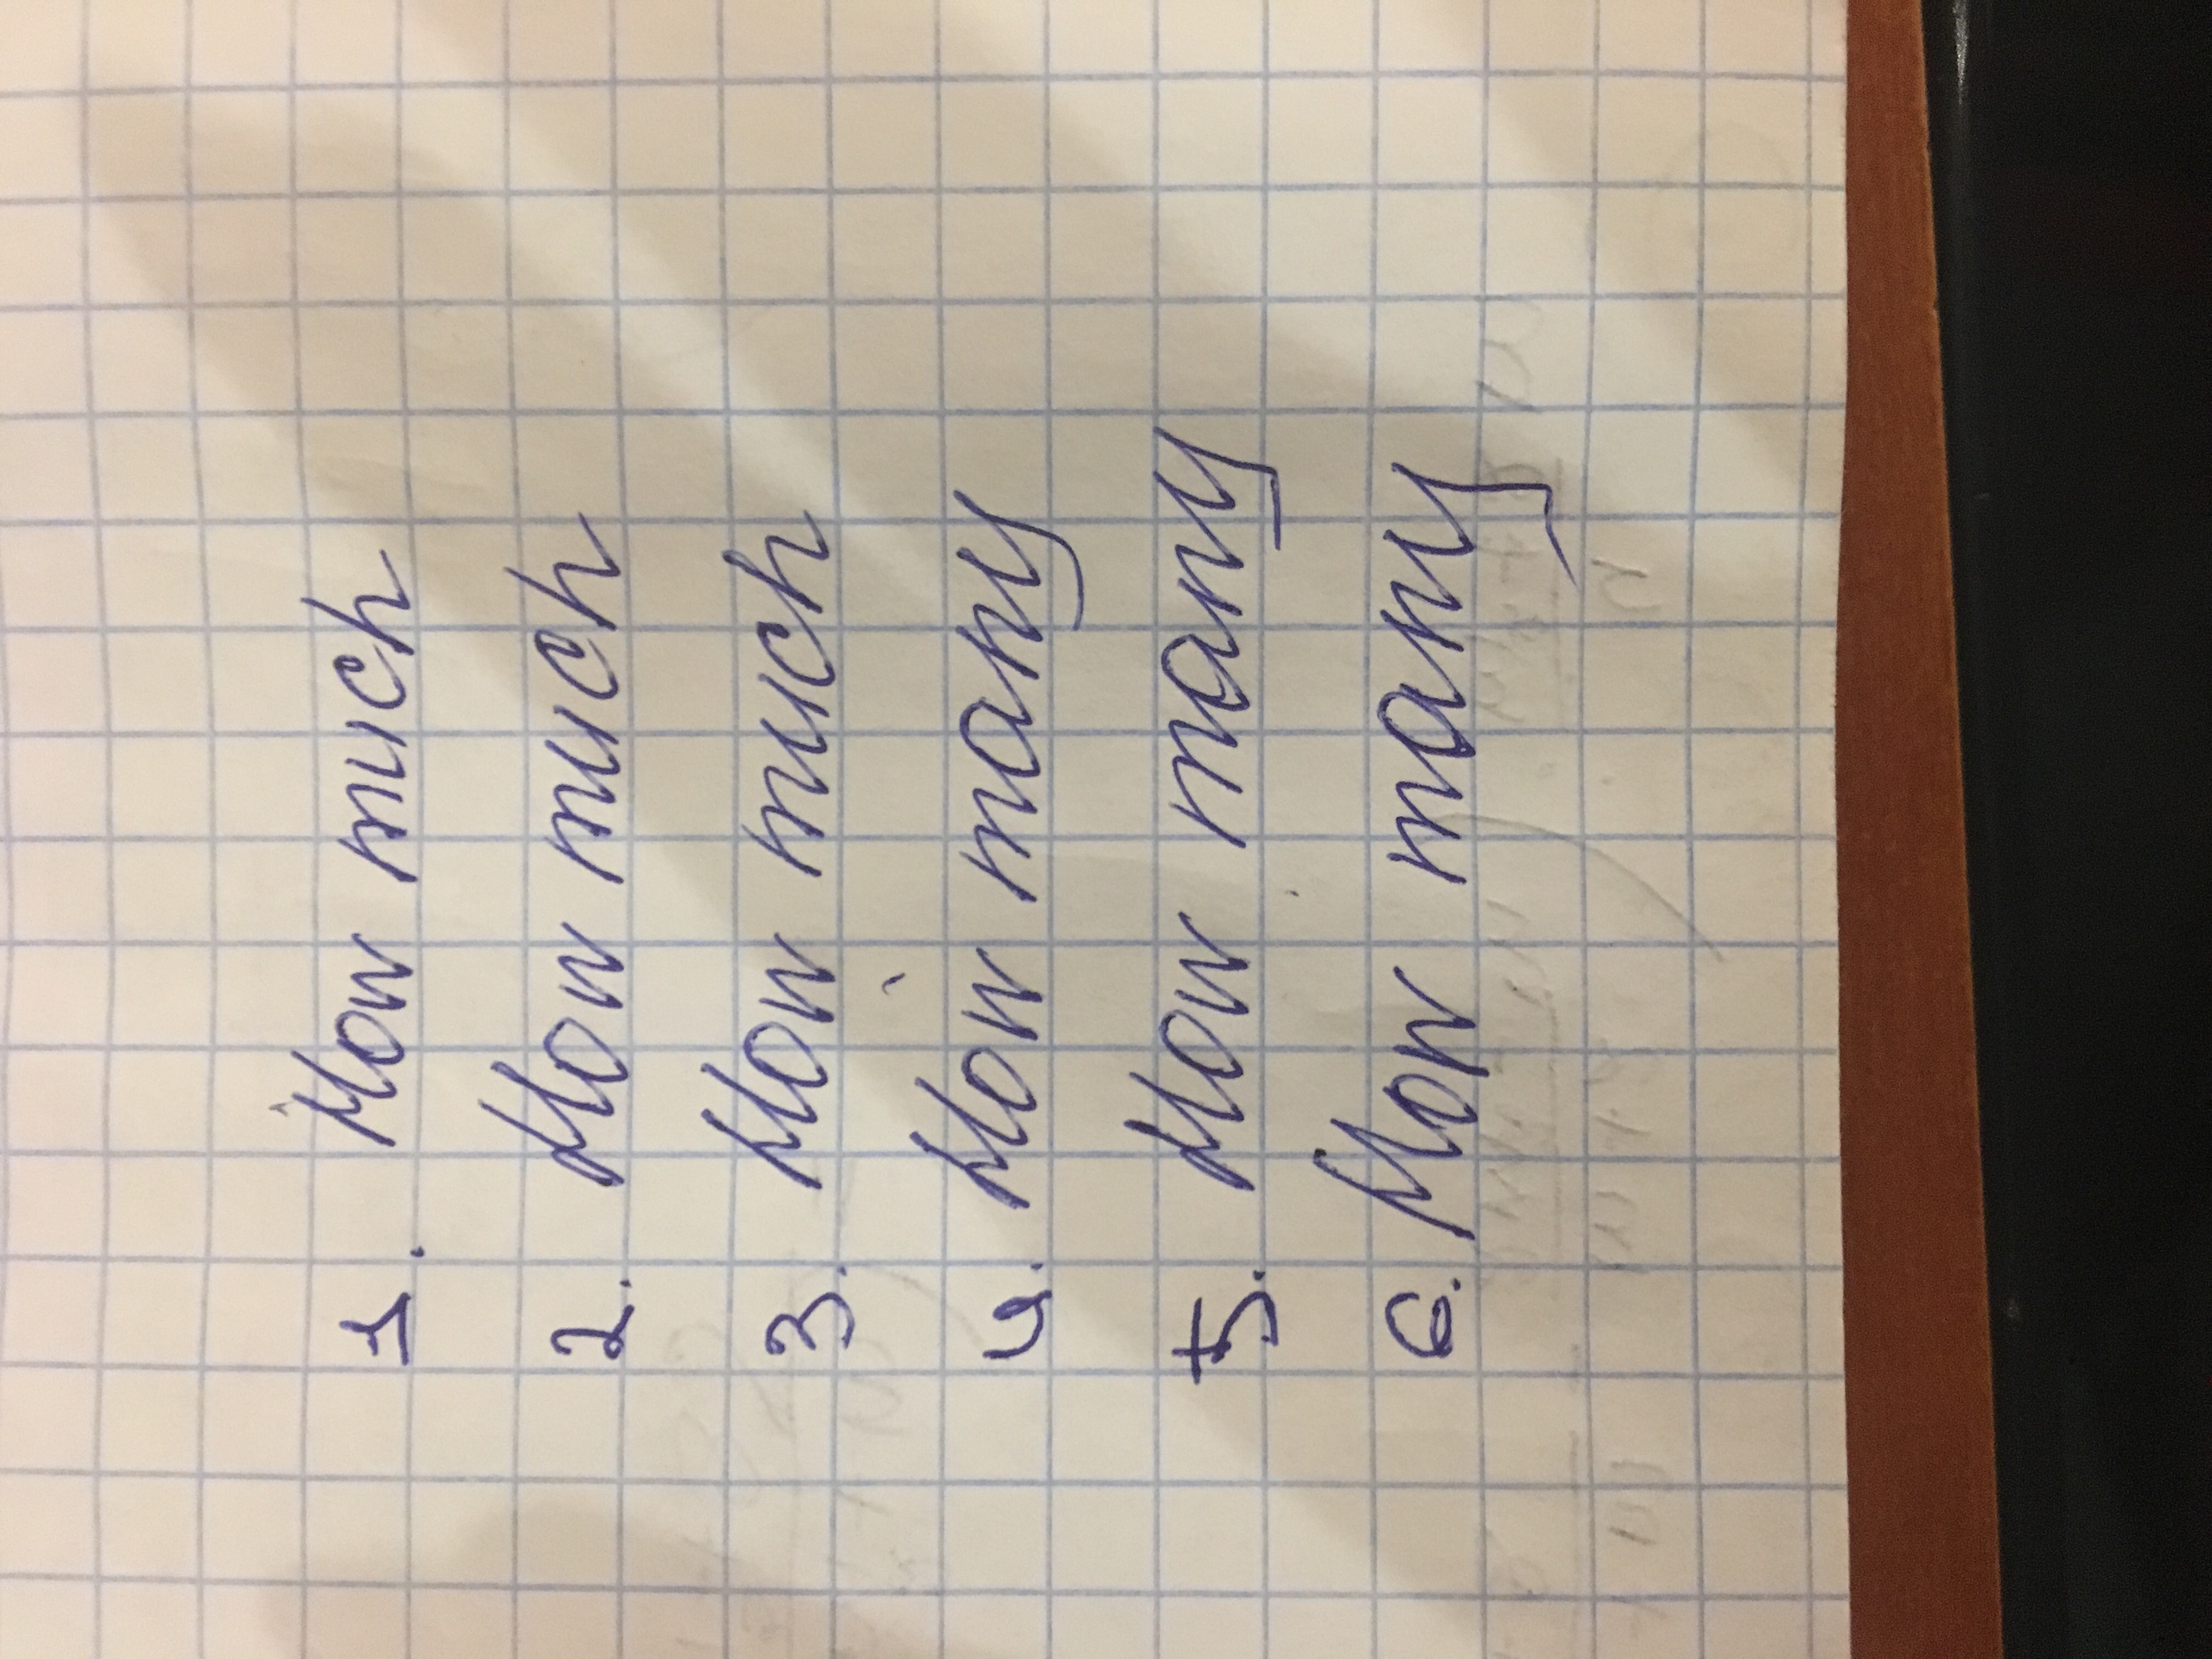 1. How much
2. How much
3. How much
4. How many
5. How many
6. How many